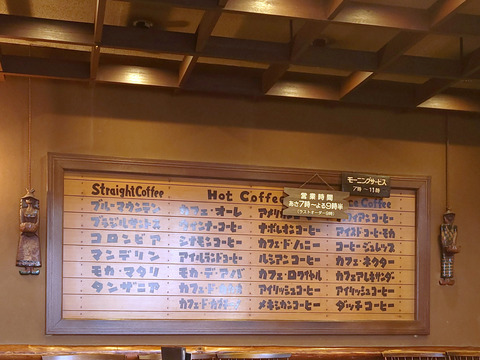 モーニングサービス
7時〜11時
営業時間
あさ7時〜よる9時半
(ラストオーダー9時)
Straight Coffee
Hot Coffee
Coffee
ブルーマウンテン
カフェ・オーレ
ブラジルサントス
ウィンナーコーヒー
ナポレオンコーヒー
アイスドコーヒーモカ
コロンビア
シナモンコーヒー
カフェ・ド・ノニー
コーヒージュレップス
マンデリン
アイルランドコーヒー
ルシアンコーヒー
カフェ・ネクター
モカ・マタリ
モカ・デ・アバ
カフェ・ロワイヤル
カフェアレキサンダー
タンザニア
アイリッシュコーヒー
アイリッシュコーヒー
カフェ・ド・カカオ
メキシカンコーヒー
ダッチコーヒー